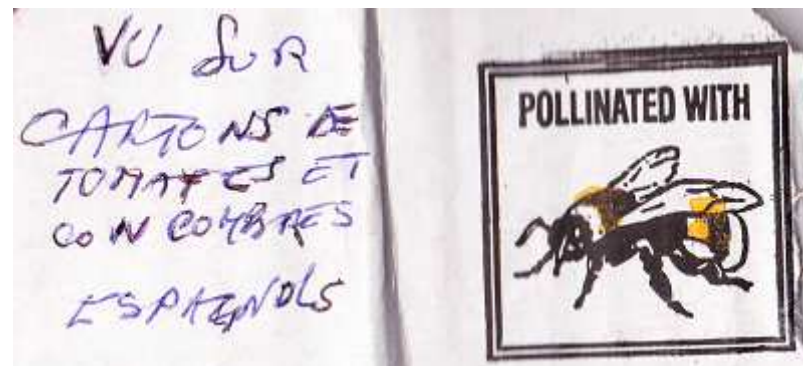 VU SUR
CARTONS DE
TOMATES ET
CONCOMBRES
ESPAGNOLS
POLLINATED WITH